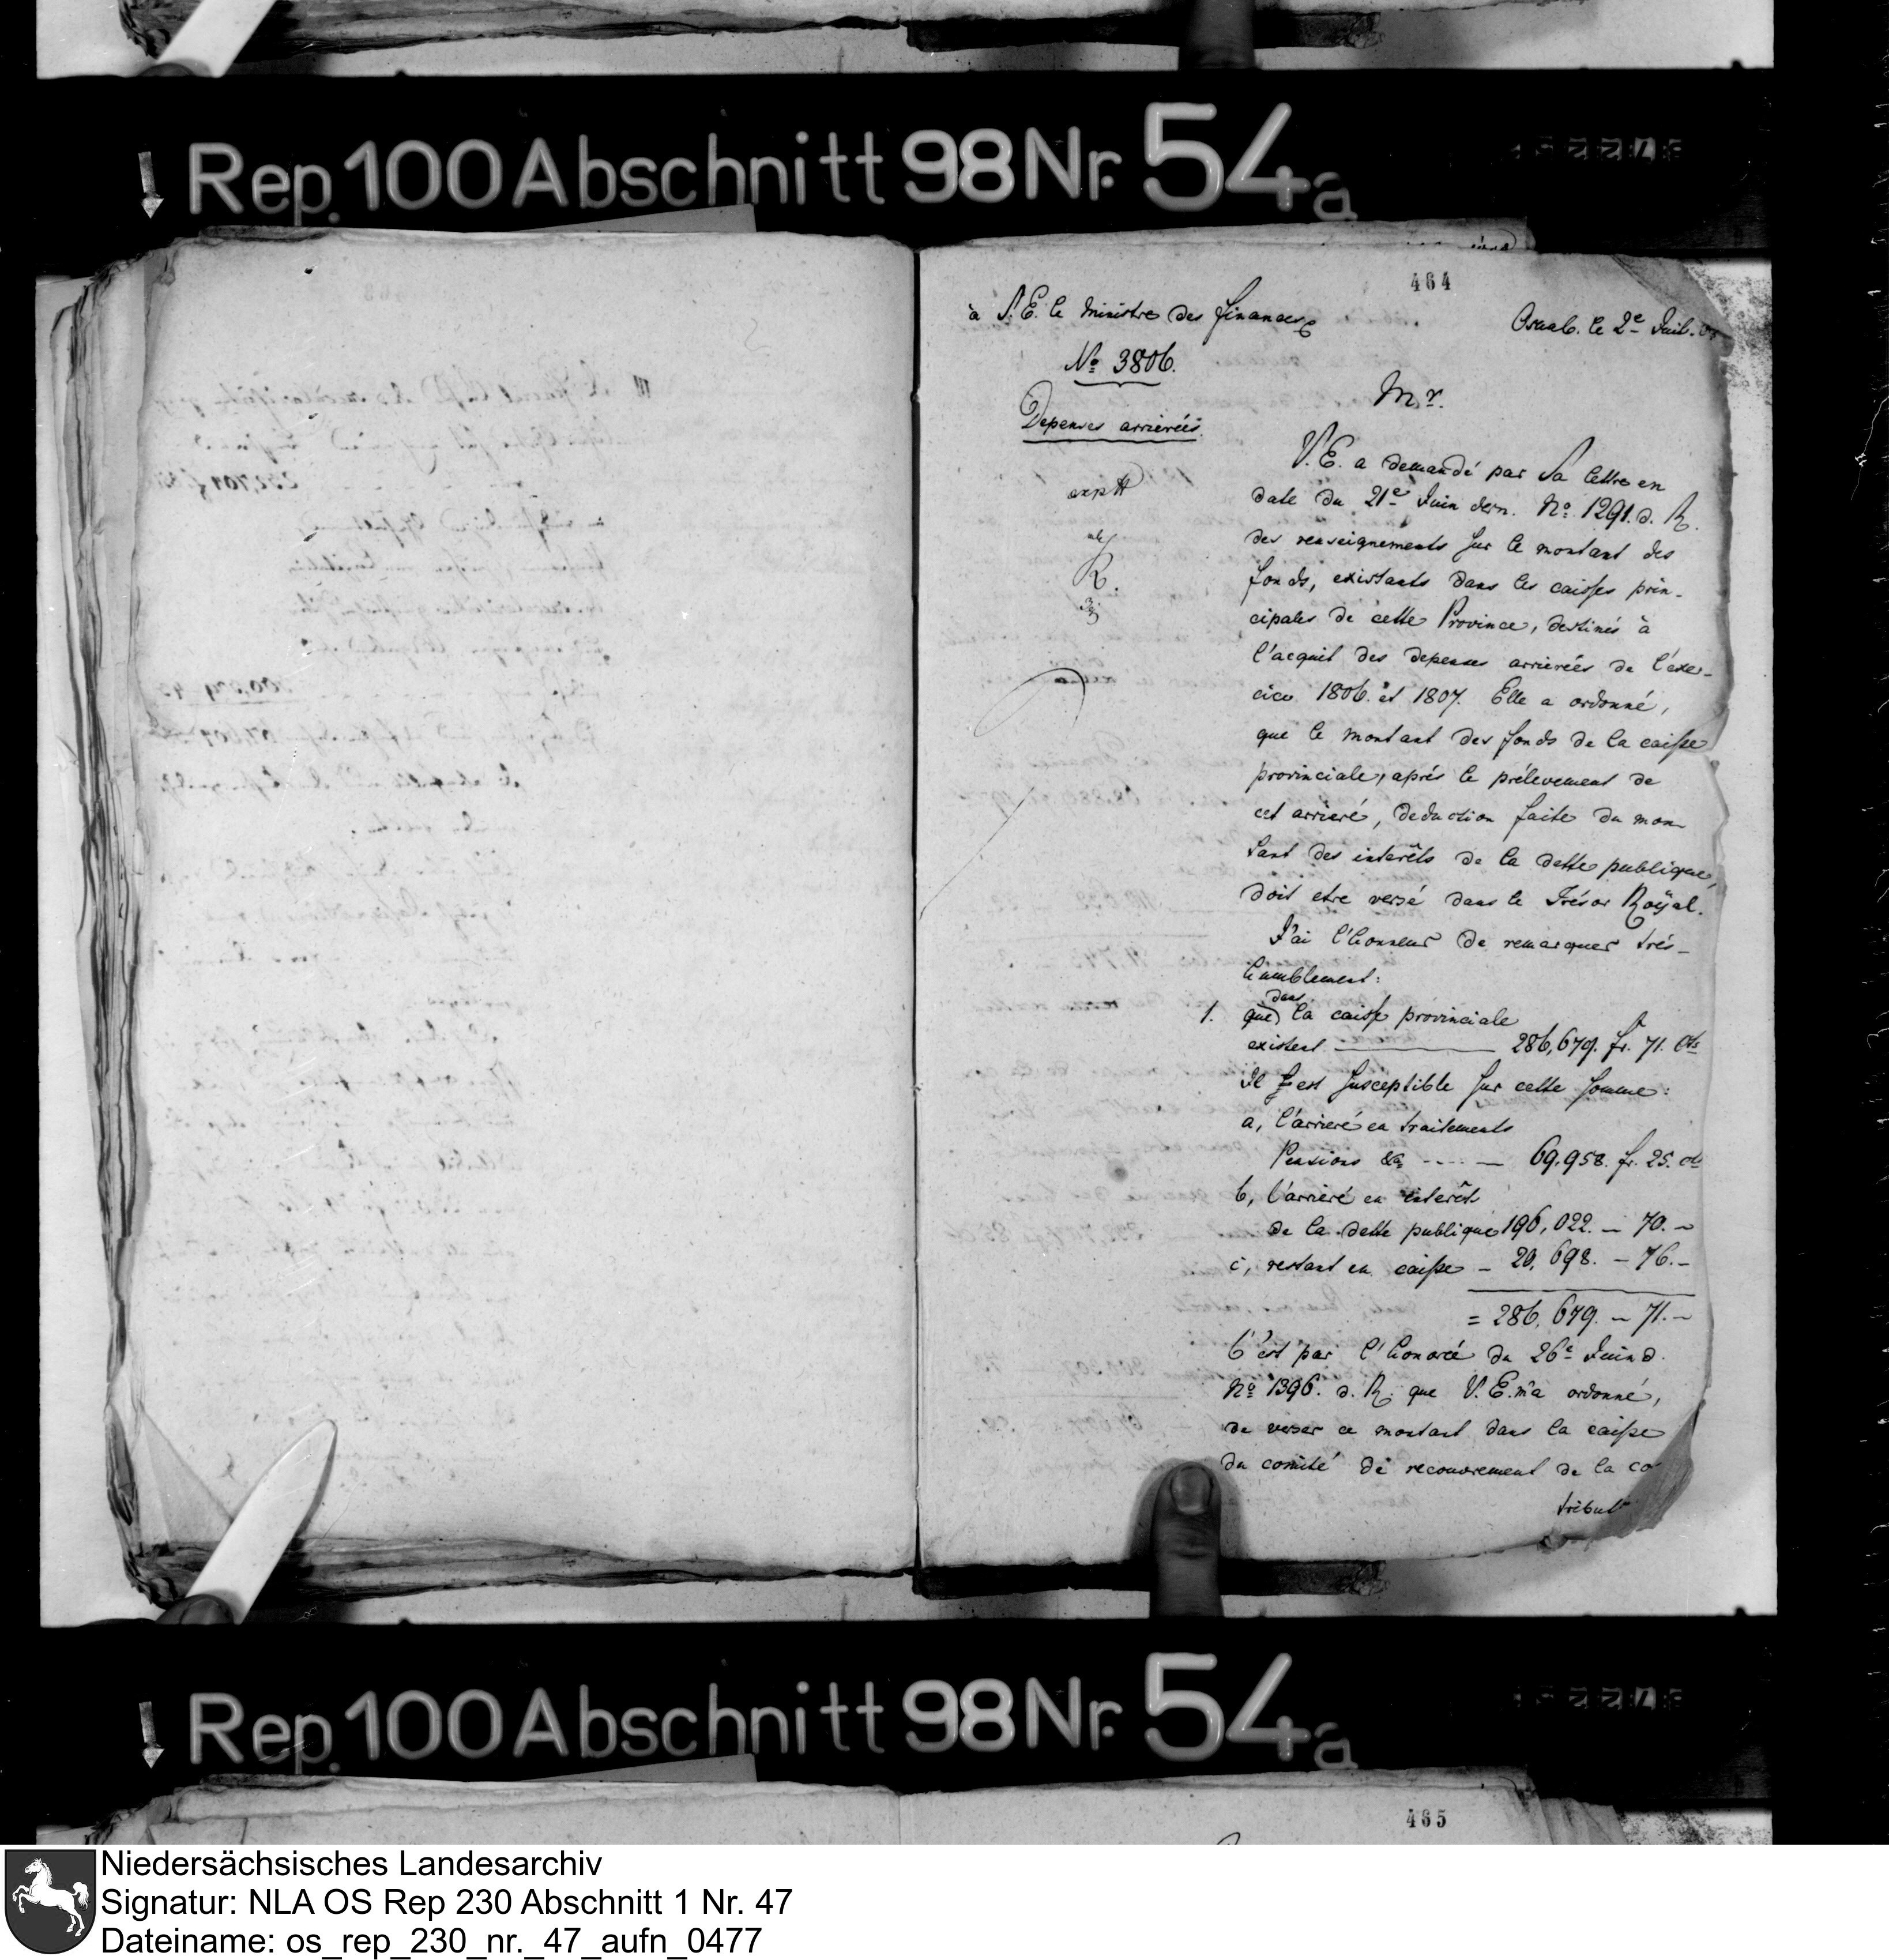 Rep. 100 Abschnitt 98 Nr. 54a
464
à S. E. le Ministre des finances
Osnab. le 2e Juil.
No 3806.
Mr.
Depenses arrierées
V. E. a demandé par Sa lettre en
date du 21e Juin dern. No 1291. d. R.
des renseignements sur le montant des
fonds, existants dans les caisses prin-
cipales de cette Province, destinés à
l'acquit des depenses arrierées de l'exer-
cice 1806. et 1807. Elle a ordonné,
que le montant des fonds de la caisse
provinciale, aprés le prélevement de
cet arrieré, deduction faite du mon
tant des interêts de la dette publique,
doit etre versé dans le Trésor Roÿal.
J'ai l'honneur de remarquer trés-
humblement:
dans
1. que la caisse provinciale
existent 286,679. fr. 71. cts
Il est susceptible sur cette somme:
a, l'arrieré en traitements
Pensions &c ---- 69,958. fr. 25. cts
b, l'arrieré en interêts
de la dette publique 196,022. - 70. -
c, restant en caisse - 20,698. - 76. -
= 286,679. - 71. -
C'est par l'honorée du 26e Juin d.
No 1396. d. R. que V. E. m'a ordonné,
de verser ce montant dans la caisse
du comité de recouvrement de la co
tribut
Rep. 100 Abschnitt 98 Nr. 54a
465
Niedersächsisches Landesarchiv
Signatur: NLA OS Rep 230 Abschnitt 1 Nr. 47
Dateiname: os_rep_230_nr._47_aufn_0477